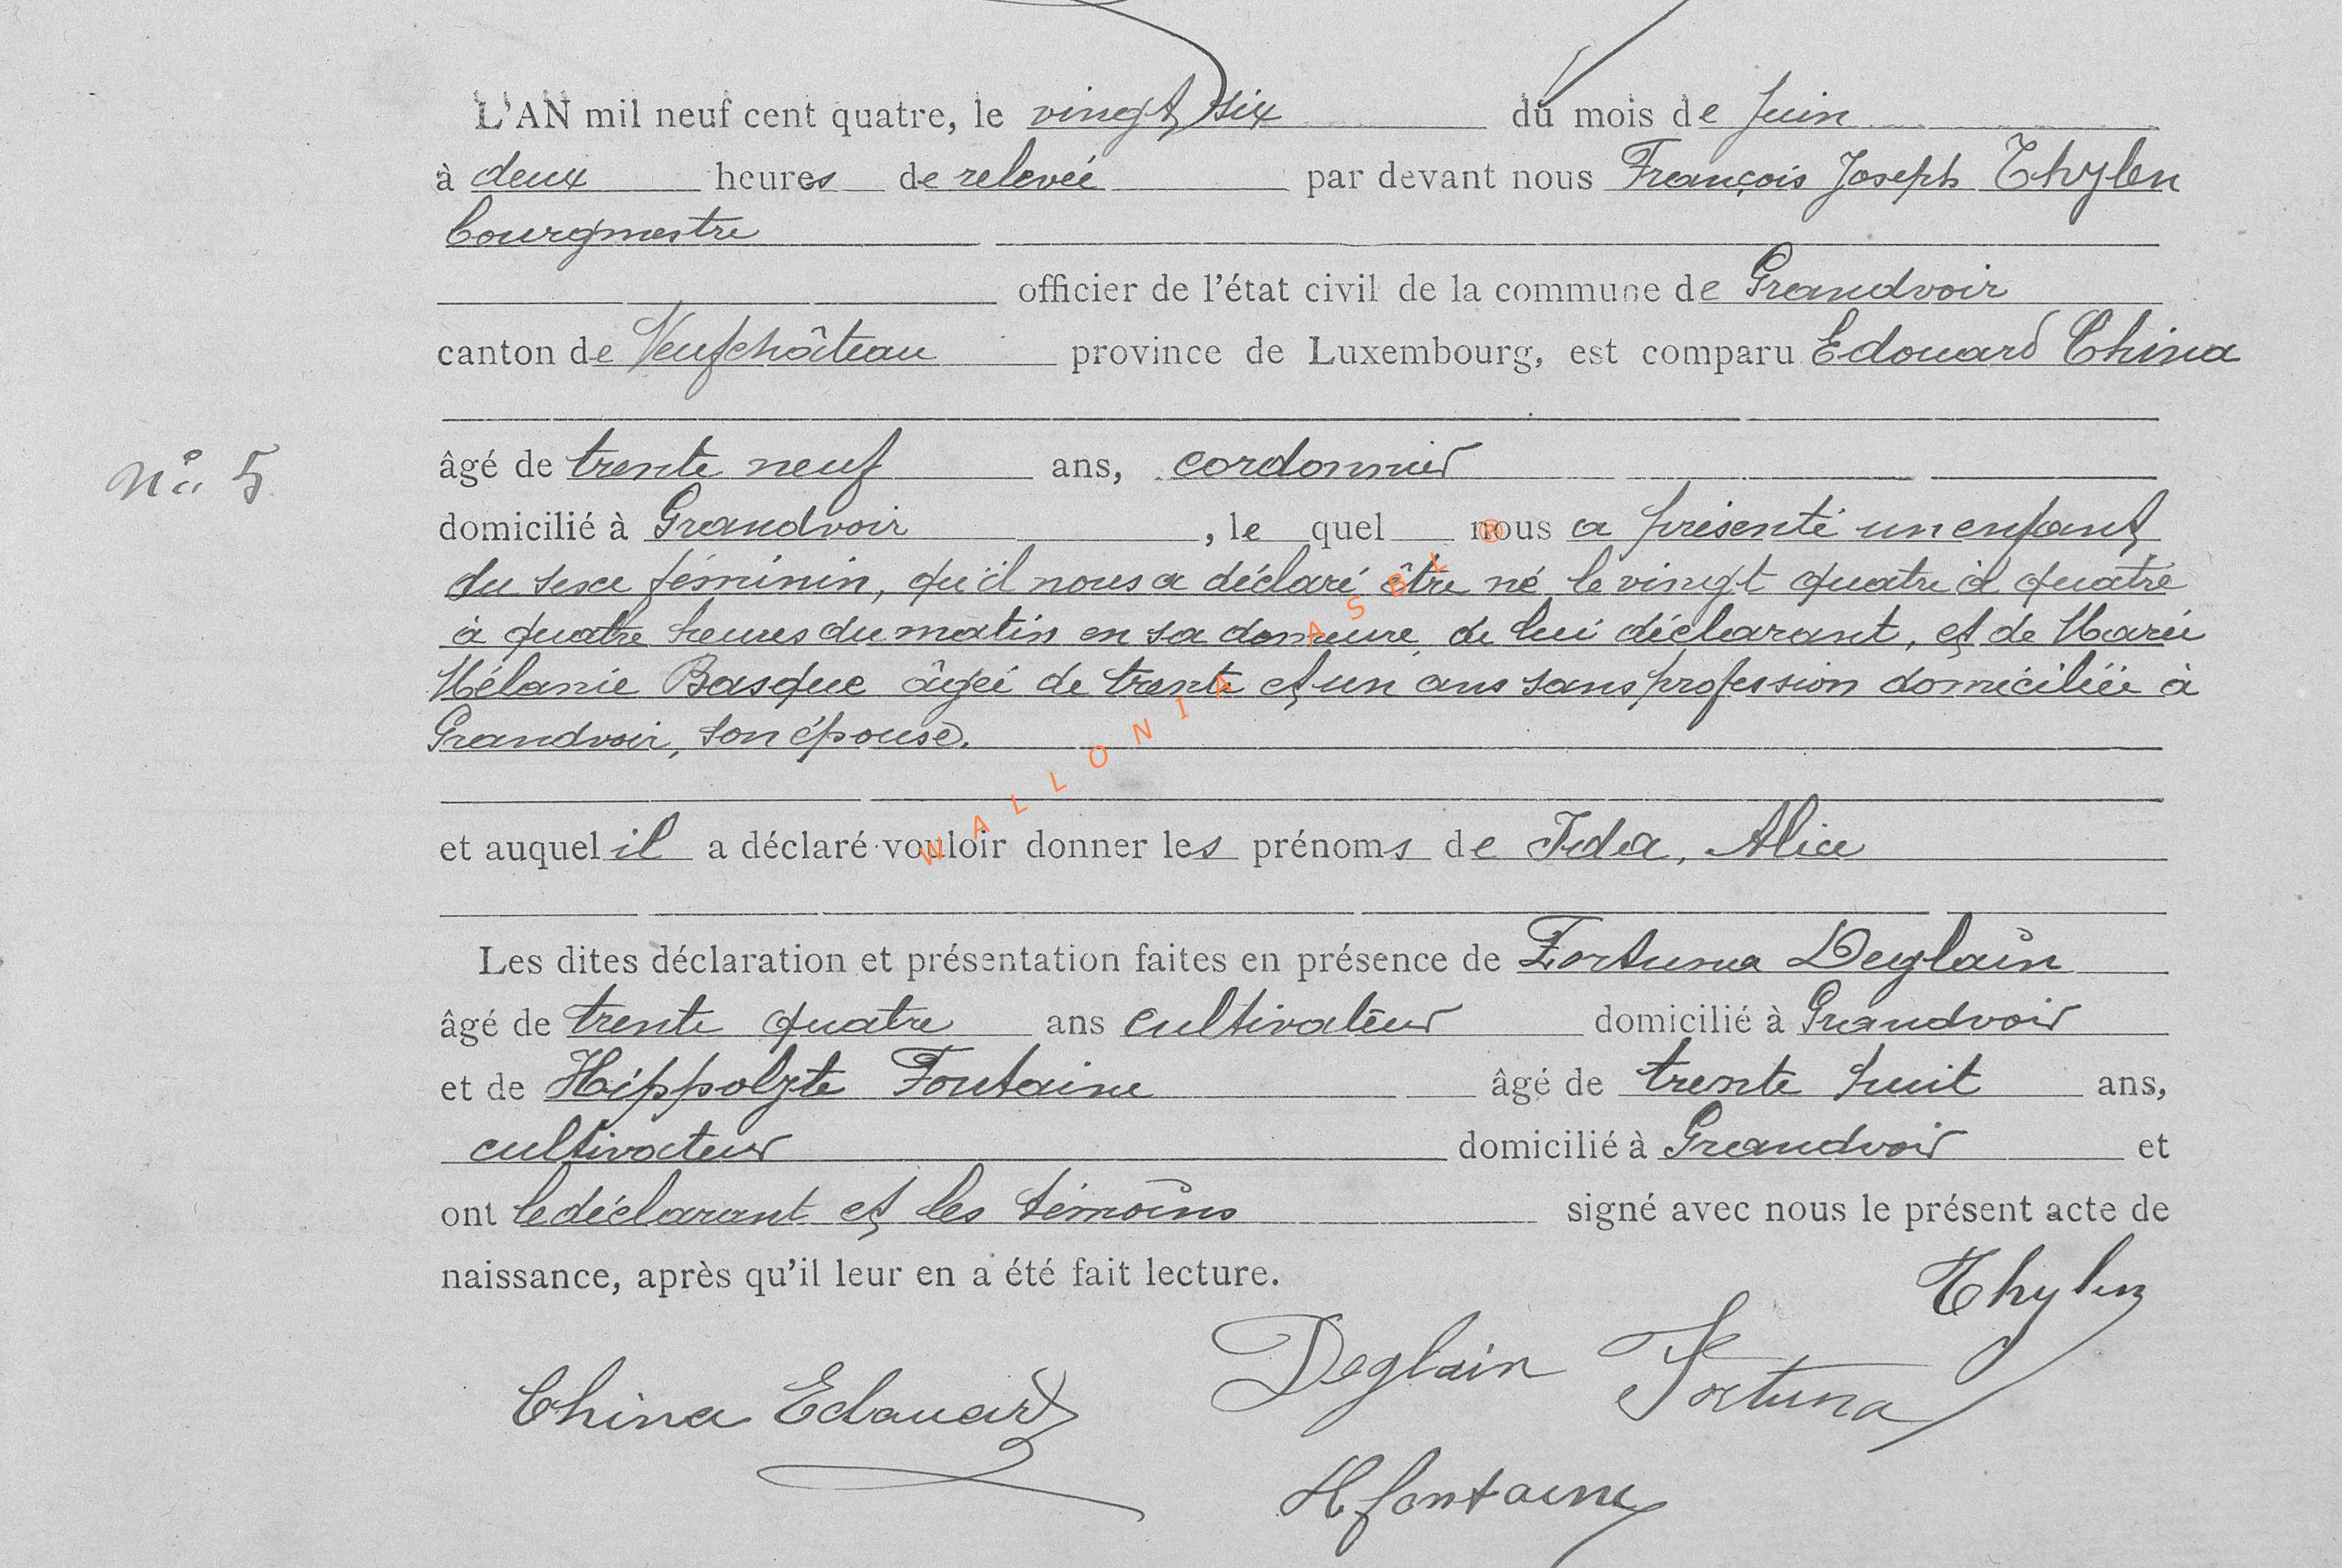 L'AN mil neuf cent quatre, le vingt six du mois de Juin
à deux heures de relevée par devant nous François Joseph Thylen
bourgmestre
officier de l'état civil de la commune de Grandvoir
canton de Neufchâteau province de Luxembourg, est comparu Edouard China
N° 5
âgé de trente neuf ans, cordonnier
domicilié à Grandvoir, le quel nous a présenté un enfant
du sexe féminin, qu'il nous a déclaré être né le vingt quatre à quatre
à quatre heures du matin en sa demeure de lui déclarant, et de Marie
Mélanie Basque âgée de trente et un ans sans profession domiciliée à
Grandvoir, son épouse.
et auquel il a déclaré vouloir donner les prénoms de Ida, Alice
Les dites déclaration et présentation faites en présence de Fortuna Deglain
âgé de trente quatre ans cultivateur domicilié à Grandvoir
et de Hippolyte Fontaine âgé de trente huit ans,
cultivateur domicilié à Grandvoir et
ont le déclarant et les témoins signé avec nous le présent acte de
naissance, après qu'il leur en a été fait lecture.
Thylen
Deglain Fortuna
China Edouard
H fontaine
WALLONIA ASBL ®